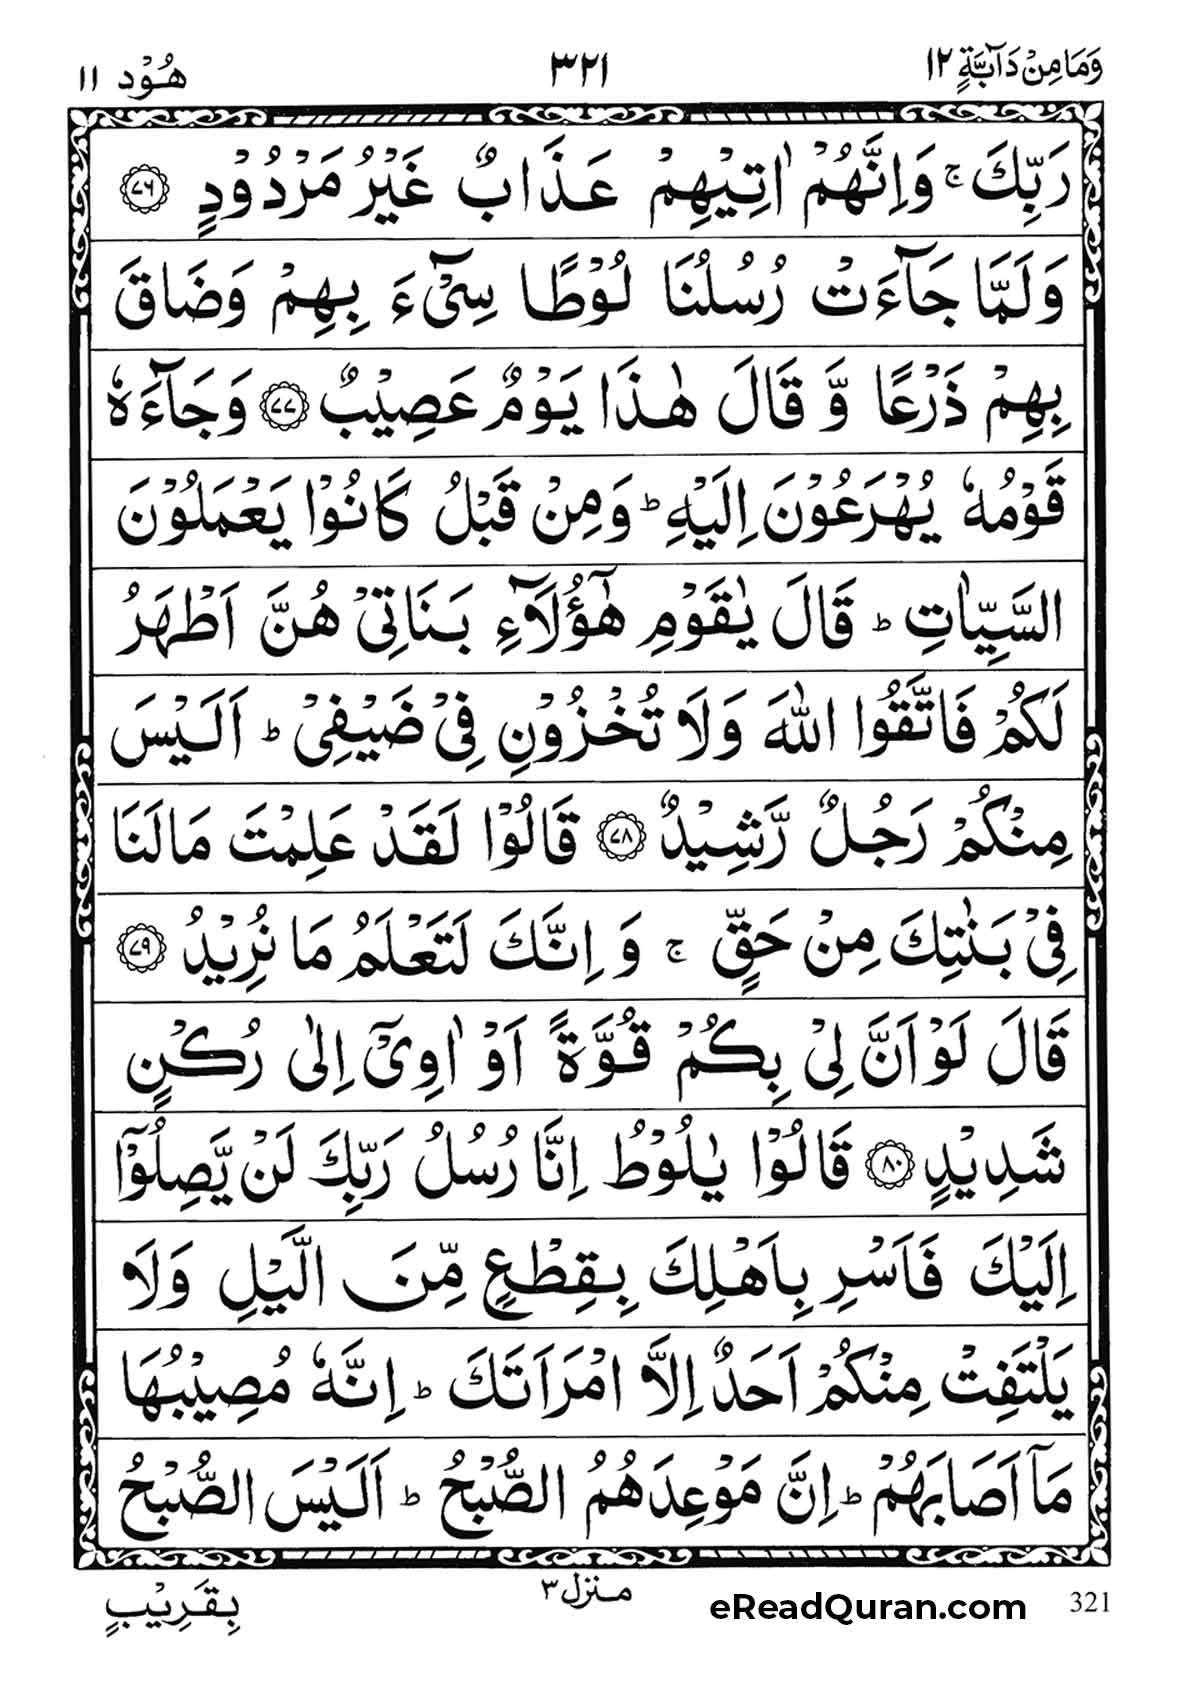 وَمَا مِنْ دَآبَّةٍ ١٢ ٣٢١ هُوْد ١١
رَبِّكَ ۚ وَاِنَّهُمْ اٰتِيْهِمْ عَذَابٌ غَيْرُ مَرْدُوْدٍ ﴿٧٦﴾
وَلَمَّا جَآءَتْ رُسُلُنَا لُوْطًا سِيْٓءَ بِهِمْ وَضَاقَ
بِهِمْ ذَرْعًا وَّ قَالَ هٰذَا يَوْمٌ عَصِيْبٌ ﴿٧٧﴾ وَجَآءَهٗ
قَوْمُهٗ يُهْرَعُوْنَ اِلَيْهِ ؕ وَمِنْ قَبْلُ كَانُوْا يَعْمَلُوْنَ
السَّيِّاٰتِ ؕ قَالَ يٰقَوْمِ هٰٓؤُلَآءِ بَنَاتِيْ هُنَّ اَطْهَرُ
لَكُمْ فَاتَّقُوا اللّٰهَ وَلَا تُخْزُوْنِ فِيْ ضَيْفِيْ ؕ اَلَيْسَ
مِنْكُمْ رَجُلٌ رَّشِيْدٌ ﴿٧٨﴾ قَالُوْا لَقَدْ عَلِمْتَ مَا لَنَا
فِيْ بَنٰتِكَ مِنْ حَقٍّ ۚ وَ اِنَّكَ لَتَعْلَمُ مَا نُرِيْدُ ﴿٧٩﴾
قَالَ لَوْ اَنَّ لِيْ بِكُمْ قُوَّةً اَوْ اٰوِيْٓ اِلٰى رُكْنٍ
شَدِيْدٍ ﴿٨٠﴾ قَالُوْا يٰلُوْطُ اِنَّا رُسُلُ رَبِّكَ لَنْ يَّصِلُوْٓا
اِلَيْكَ فَاَسْرِ بِاَهْلِكَ بِقِطْعٍ مِّنَ الَّيْلِ وَلَا
يَلْتَفِتْ مِنْكُمْ اَحَدٌ اِلَّا امْرَاَتَكَ ؕ اِنَّهٗ مُصِيْبُهَا
مَآ اَصَابَهُمْ ؕ اِنَّ مَوْعِدَهُمُ الصُّبْحُ ؕ اَلَيْسَ الصُّبْحُ
بِقَرِيْبٍ منزل ٣ eReadQuran.com 321